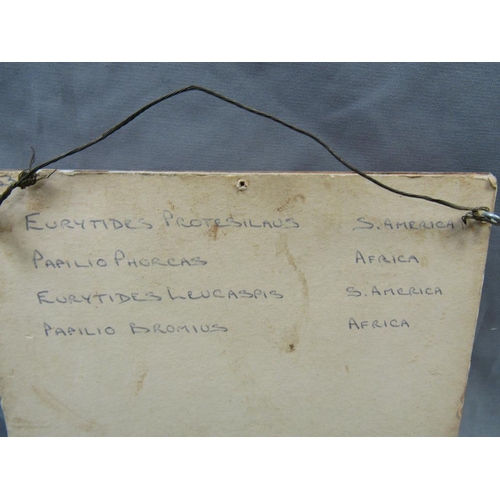 Eurytides Protesilaus S. America
Papilio Phorcas Africa
Eurytides Leucaspis S. America
Papilio Bromius Africa